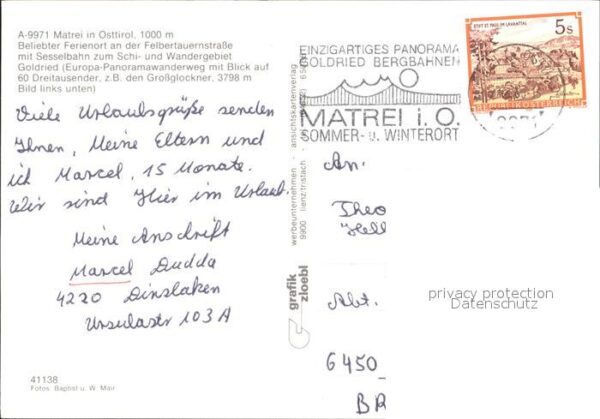 A-9971 Matrei in Osttirol, 1000 m
Beliebter Ferienort an der Felbertauernstraße
mit Sesselbahn zum Schi- und Wandergebiet
Goldried (Europa-Panoramawanderweg mit Blick auf
60 Dreitausender, z.B. den Großglockner, 3798 m
Bild links unten)
Viele Urlaubsgrüße senden
Ihnen, Meine Eltern und
ich Marcel, 15 Monate.
Wir sind Hier im Urlaub.
Meine Anschrift
Marcel Dudda
4220 Dinslaken
Ursulastr 103 A
41138
Fotos: Baptist u. W. Mair
werbeunternehmen - ansichtskartenverlag
9900 lienz/tristach
grafik
zloebl
EINZIGARTIGES PANORAMA
GOLDRIED BERGBAHNEN
MATREI i. O.
SOMMER- u. WINTERORT
STIFT ST. PAUL IM LAVANTTAL
5s
REPUBLIK ÖSTERREICH
9971
An.
Theo
Hell
Abt.
6450
BR
privacy protection
Datenschutz